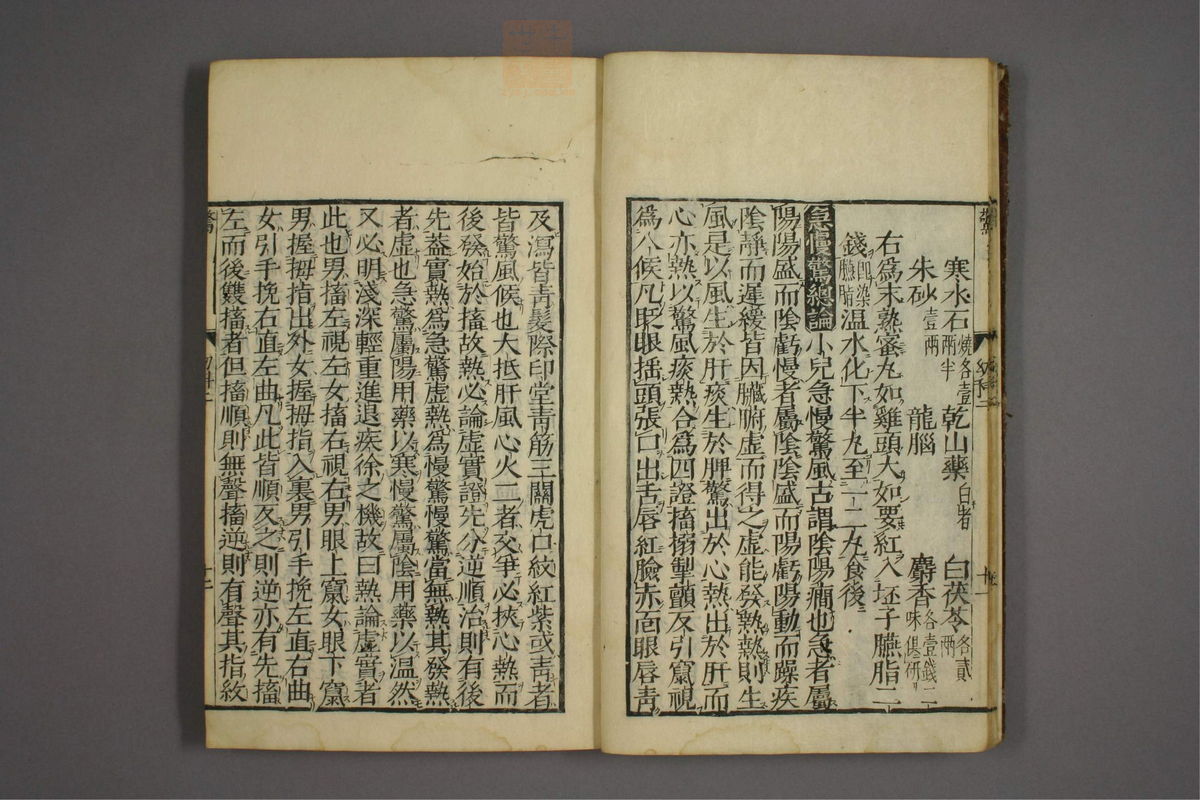 寒水石燒各壹兩半　乾山藥白者　白茯苓各貳兩
朱砂壹兩　龍腦　麝香各壹錢二味俱研
右爲末熟蜜丸如雞頭大如要紅入坯子臙脂二
錢即染臙脂溫水化下半丸至一二丸食後
急慢驚總論小兒急慢驚風古謂陰陽癇也急者屬
陽陽盛而陰虧慢者屬陰陰盛而陽虧陽動而躁疾
陰靜而遲緩皆因臟腑虛而得之虛能發熱熱則生
風是以風生於肝痰生於脾驚出於心熱出於肝而
心亦熱以驚風痰熱合爲四證搐搦掣顫反引竄視
爲八候凡眨眼揺頭張口出舌唇紅臉赤面眼唇靑
及瀉皆靑髮際印堂靑筋三關虎口紋紅紫或靑者
皆驚風候也大抵肝風心火二者交爭必挾心熱而
後發始於搐故熱必論虛實證先分逆順治則有後
先葢實熱爲急驚虛熱爲慢驚慢驚當無熱其發熱
者虛也急驚屬陽用藥以寒慢驚屬陰用藥以温然
又必明淺深輕重進退疾徐之機故曰熱論虛實者
此也男搐左視左女搐右視右男眼上竄女眼下竄
男握拇指出外女握拇指入裏男引手挽左直右曲
女引手挽右直左曲凡此皆順反之則逆亦有先搐
左而後雙搐者但搐順則無聲搐逆則有聲其指紋